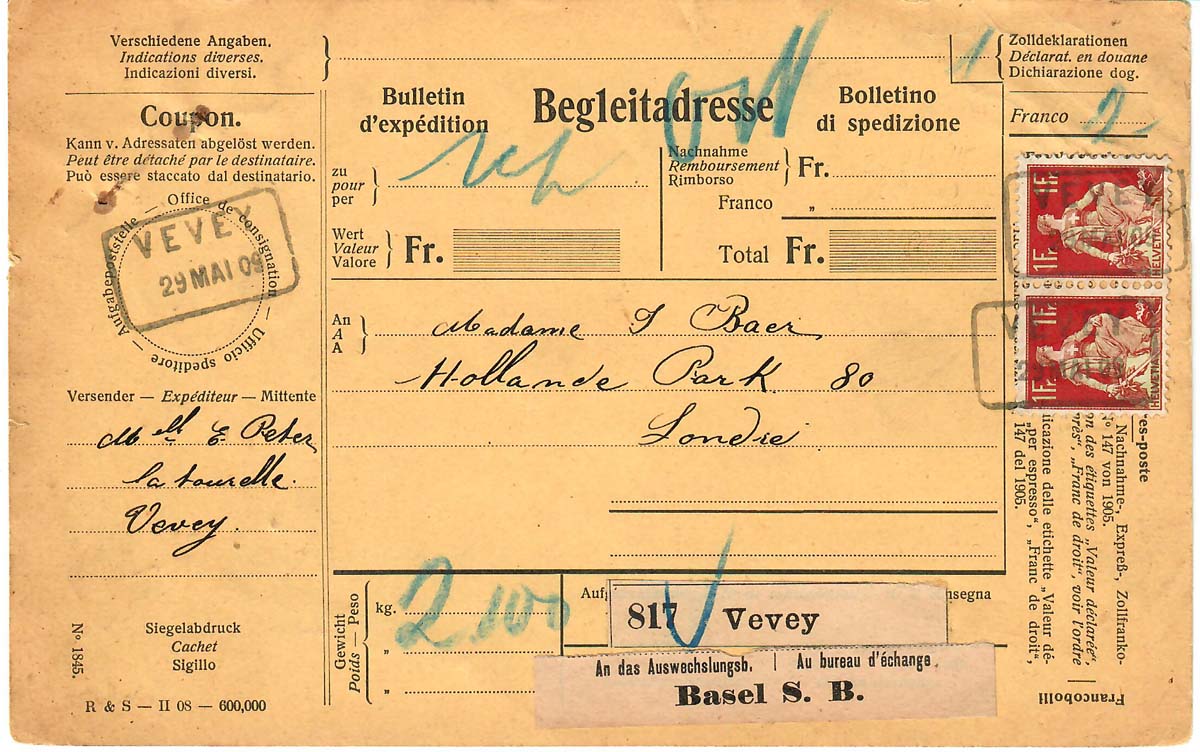 Verschiedene Angaben.
Indications diverses.
Indicazioni diversi.
Zolldeklarationen
Déclarat. en douane
Dichiarazione dog.
1
Coupon.
Kann v. Adressaten abgelöst werden.
Peut être détaché par le destinataire.
Può essere staccato dal destinatario.
Bulletin
d'expédition
Begleitadresse
Bolletino
di spedizione
Franco
2
zu
pour
per
Nachnahme
Remboursement
Rimborso
Fr.
Franco
„
Wert
Valeur
Valore
Fr.
Total Fr.
Aufgabepoststelle — Office de consignation — Ufficio speditore —
VEVEY
29 MAI 09
1 Fr.
1 Fr.
HELVETIA
VEVEY
1 Fr.
1 Fr.
HELVETIA
VEVEY
29 MAI 09
An
A
A
Madame J Baer
Hollande Park 80
Londre
Versender — Expéditeur — Mittente
Mell E Peter
la tourelle.
Vevey.
es-poste
Nachnahme-, Expreß-, Zollfranko-
No 147 von 1905.
on des étiquettes „Valeur déclarée“,
près“, „Franc de droit“, voir l'ordre
dicazione delle etichette „Valeur dé-
„per espresso“, „Franc de droit“,
147 del 1905.
Francobolli
Siegelabdruck
Cachet
Sigillo
No. 1845.
R & S — II 08 — 600,000
Gewicht
Poids — Peso
kg.
2 100
„
„
817 Vevey
An das Auswechslungsb. | Au bureau d'échange
Basel S. B.